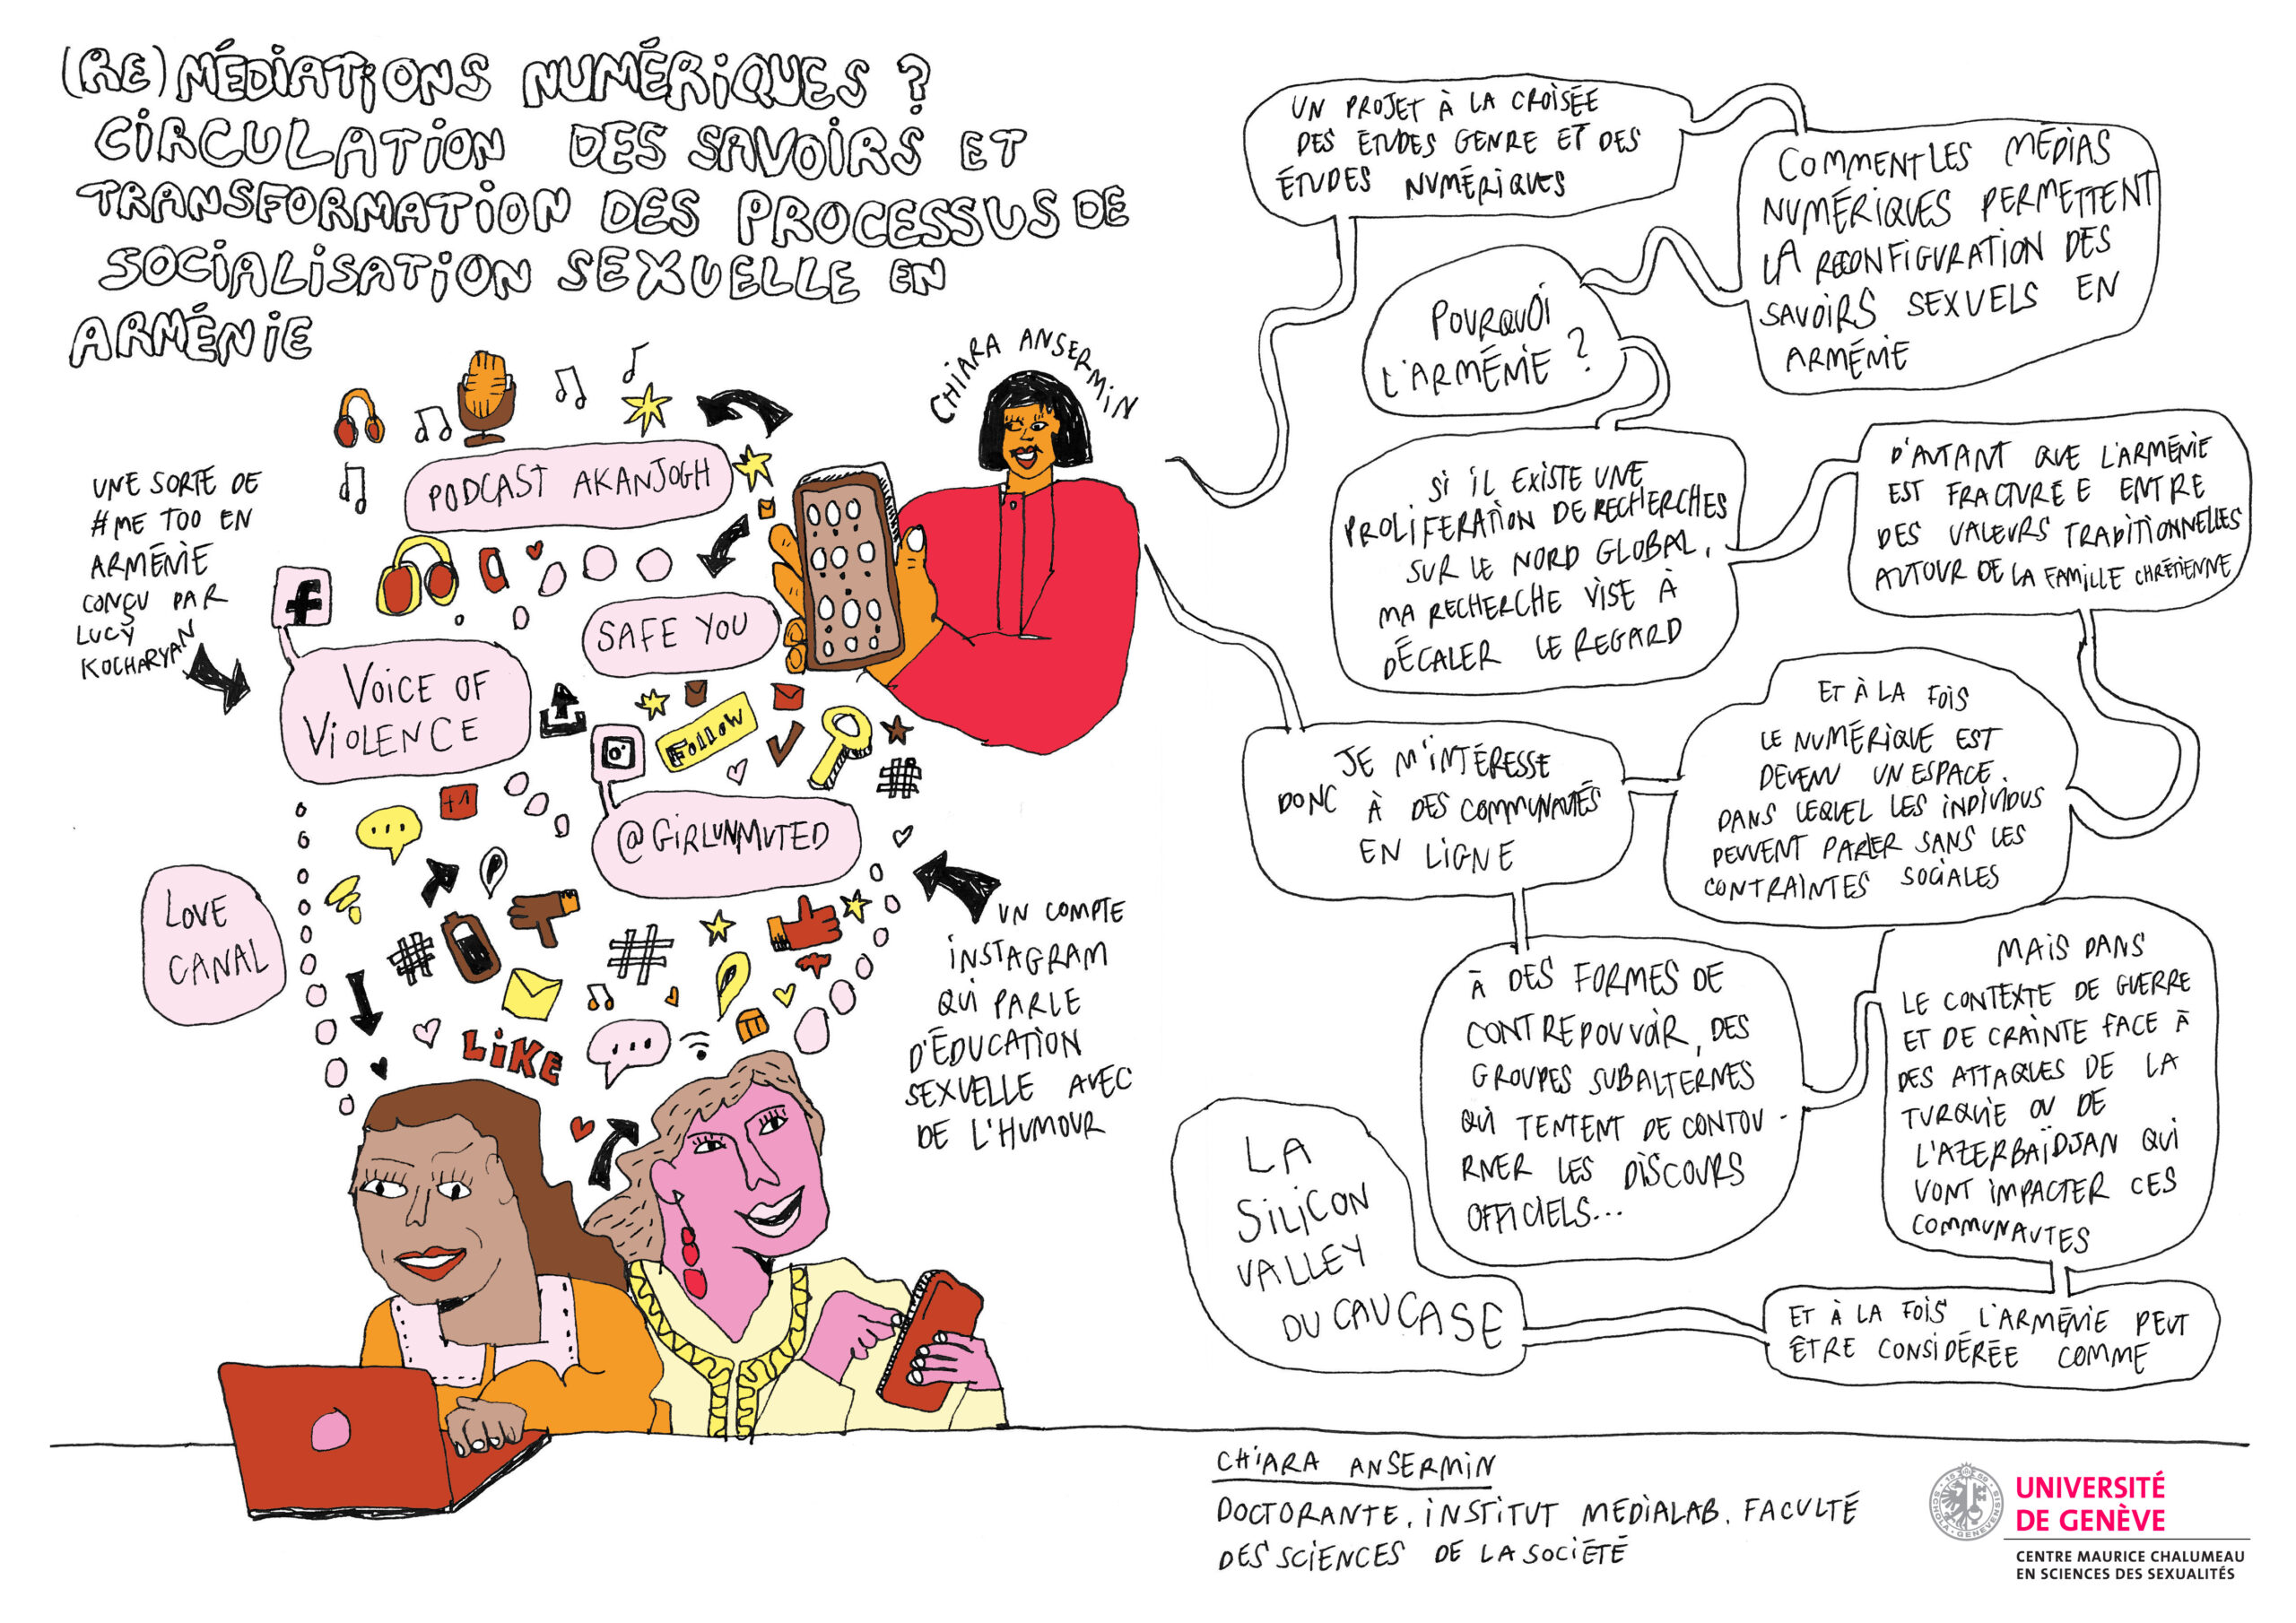 (RE)MÉDIATIONS NUMÉRIQUES ?
CIRCULATION DES SAVOIRS ET
TRANSFORMATION DES PROCESSUS DE
SOCIALISATION SEXUELLE EN
ARMÉNIE
CHIARA ANSERMIN
PODCAST AKANJOGH
UNE SORTE DE
#ME TOO EN
ARMÉNIE
CONÇU PAR
LUCY
KOCHARYAN
f
SAFE YOU
VOICE OF
VIOLENCE
FOLLOW
+1
@GIRLUNMUTED
LOVE
CANAL
UN COMPTE
INSTAGRAM
QUI PARLE
D'ÉDUCATION
SEXUELLE AVEC
DE L'HUMOUR
LIKE
UN PROJET À LA CROISÉE
DES ÉTUDES GENRE ET DES
ÉTUDES NUMÉRIQUES
COMMENT LES MÉDIAS
NUMÉRIQUES PERMETTENT
LA RECONFIGURATION DES
SAVOIRS SEXUELS EN
ARMÉNIE
POURQUOI
L'ARMÉNIE ?
SI IL EXISTE UNE
PROLIFERATION DE RECHERCHES
SUR LE NORD GLOBAL,
MA RECHERCHE VISE À
DÉCALER LE REGARD
D'AUTANT QUE L'ARMÉNIE
EST FRACTURÉE ENTRE
DES VALEURS TRADITIONNELLES
AUTOUR DE LA FAMILLE CHRÉTIENNE
ET À LA FOIS
LE NUMÉRIQUE EST
DEVENU UN ESPACE
DANS LEQUEL LES INDIVIDUS
PEUVENT PARLER SANS LES
CONTRAINTES SOCIALES
JE M'INTÉRESSE
DONC À DES COMMUNAUTÉS
EN LIGNE
À DES FORMES DE
CONTREPOUVOIR, DES
GROUPES SUBALTERNES
QUI TENTENT DE CONTOU-
RNER LES DISCOURS
OFFICIELS...
MAIS DANS
LE CONTEXTE DE GUERRE
ET DE CRAINTE FACE À
DES ATTAQUES DE LA
TURQUIE OU DE
L'AZERBAÏDJAN QUI
VONT IMPACTER CES
COMMUNAUTES
ET À LA FOIS L'ARMÉNIE PEUT
ÊTRE CONSIDÉRÉE COMME
LA
SILICON
VALLEY
DU CAUCASE
CHIARA ANSERMIN
DOCTORANTE. INSTITUT MEDIALAB. FACULTÉ
DES SCIENCES DE LA SOCIÉTÉ
SCHOLA GENEVENSIS 1559
UNIVERSITÉ
DE GENÈVE
CENTRE MAURICE CHALUMEAU
EN SCIENCES DES SEXUALITÉS